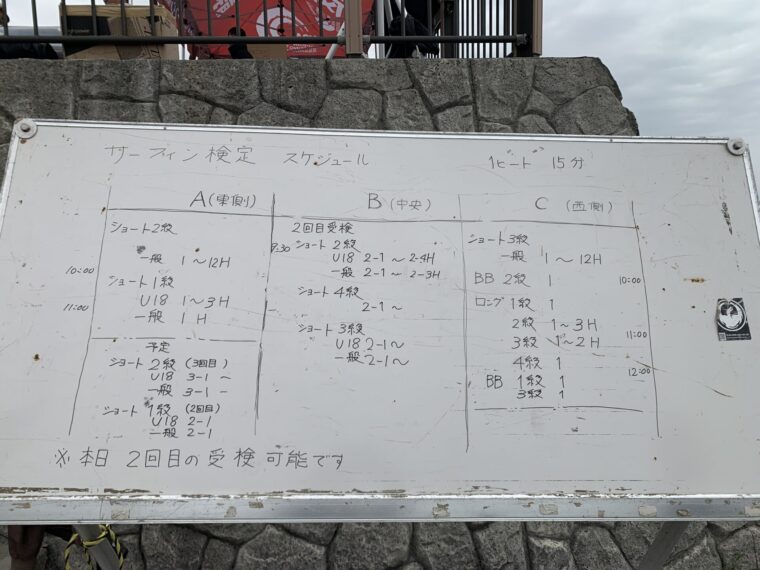 サーフィン検定 スケジュール 1ヒート 15分
A(東側)
ショート2級
一般 1〜12H
10:00
ショート1級
U18 1〜3H
11:00
一般 1H
予定
ショート2級 (3回目)
U18 3-1 〜
一般 3-1 〜
ショート1級 (2回目)
U18 2-1
一般 2-1
B(中央)
2回目受検
9:30 ショート2級
U18 2-1 〜 2-4H
一般 2-1 〜 2-3H
ショート4級
2-1 〜
ショート3級
U18 2-1〜
一般 2-1〜
C(西側)
ショート3級
一般 1〜12H
BB 2級 1 10:00
ロング 1級 1
2級 1〜3H
11:00
3級 1〜2H
4級 1
12:00
BB 1級 1
3級 1
※本日 2回目の受検可能です